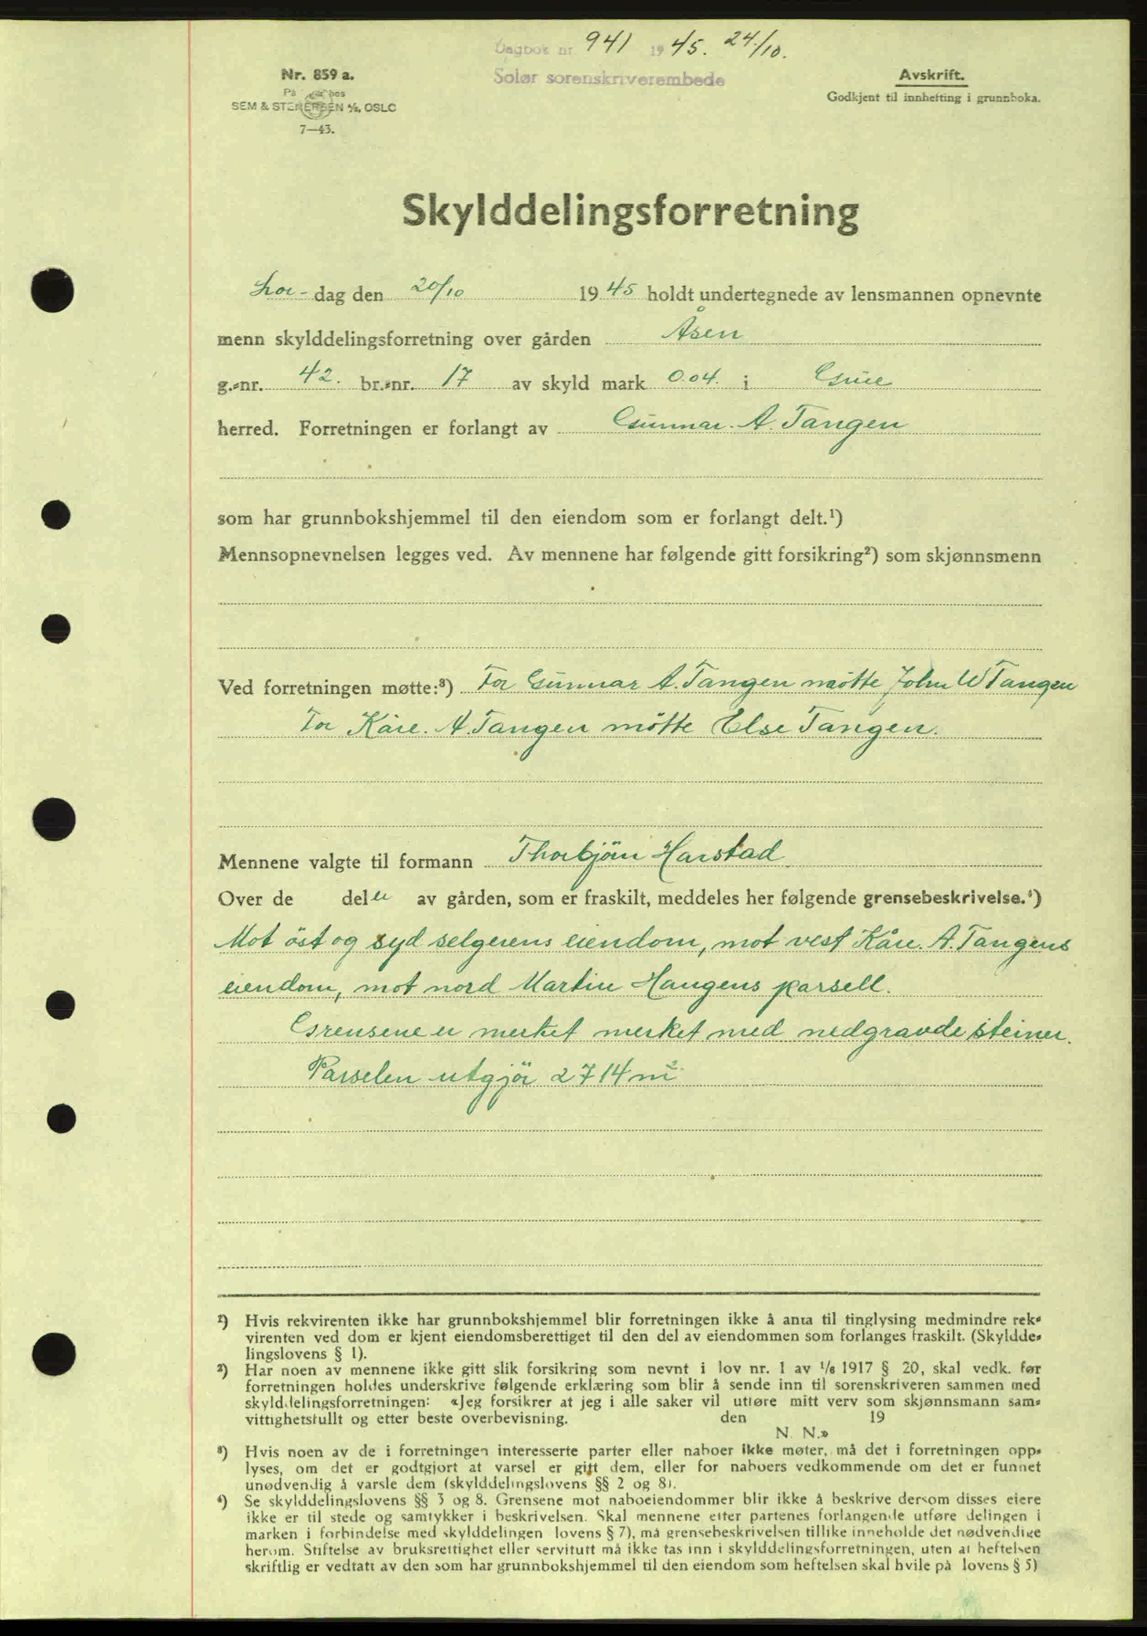 Dagbok nr. 941 1945. 24/10.
Solør sorenskriverembede
Nr. 859 a.
SEM & STENERSEN A/S, OSLO
7—43.
Avskrift.
Godkjent til innhefting i grunnboka.
Skylddelingsforretning
Lør-dag den 20/10 1945 holdt undertegnede av lensmannen opnevnte
menn skylddelingsforretning over gården Åsen
g.-nr. 42. br.-nr. 17 av skyld mark 0.04. i Grue
herred. Forretningen er forlangt av Gunnar. A. Tangen
som har grunnbokshjemmel til den eiendom som er forlangt delt.¹)
Mennsopnevnelsen legges ved. Av mennene har følgende gitt forsikring²) som skjønnsmenn
Ved forretningen møtte:³) For Gunnar A. Tangen møtte John W Tangen
For Kåre. A. Tangen møtte Else Tangen.
Mennene valgte til formann Thorbjörn Harstad
Over de deler av gården, som er fraskilt, meddeles her følgende grensebeskrivelse.⁴)
Mot öst og syd selgerens eiendom, mot vest Kåre. A. Tangens
eiendom, mot nord Martin Haugens parsell.
Grensene er merket merket med nedgravde steiner.
Parselen utgjör 2714 m²
¹) Hvis rekvirenten ikke har grunnbokshjemmel blir forretningen ikke å anta til tinglysing medmindre rek-
virenten ved dom er kjent eiendomsberettiget til den del av eiendommen som forlanges fraskilt. (Skyldde-
lingslovens § 1).
²) Har noen av mennene ikke gitt slik forsikring som nevnt i lov nr. 1 av 1/6 1917 § 20, skal vedk. før
forretningen holdes underskrive følgende erklæring som blir å sende inn til sorenskriveren sammen med
skylddelingsforretningen: «Jeg forsikrer at jeg i alle saker vil utføre mitt verv som skjønnsmann sam-
vittighetsfullt og etter beste overbevisning. den 19
N. N.»
³) Hvis noen av de i forretningen interesserte parter eller naboer ikke møter, må det i forretningen opp-
lyses, om det er godtgjort at varsel er gitt dem, eller for naboers vedkommende om det er funnet
unødvendig å varsle dem (skylddelingslovens §§ 2 og 8).
⁴) Se skylddelingslovens §§ 3 og 8. Grensene mot naboeiendommer blir ikke å beskrive dersom disses eiere
ikke er til stede og samtykker i beskrivelsen. Skal mennene etter partenes forlangende utføre delingen i
marken i forbindelse med skylddelingen lovens § 7), må grensebeskrivelsen tillike inneholde det nødvendige
herom. Stiftelse av bruksrettighet eller servitutt må ikke tas inn i skylddelingsforretningen, uten at heftelsen
skriftlig er vedtatt av den som har grunnbokshjemmel til den eiendom som heftelsen skal hvile på lovens § 5)